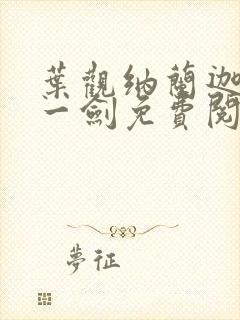 葉觀納蘭迦
一劍免費閱
夢征